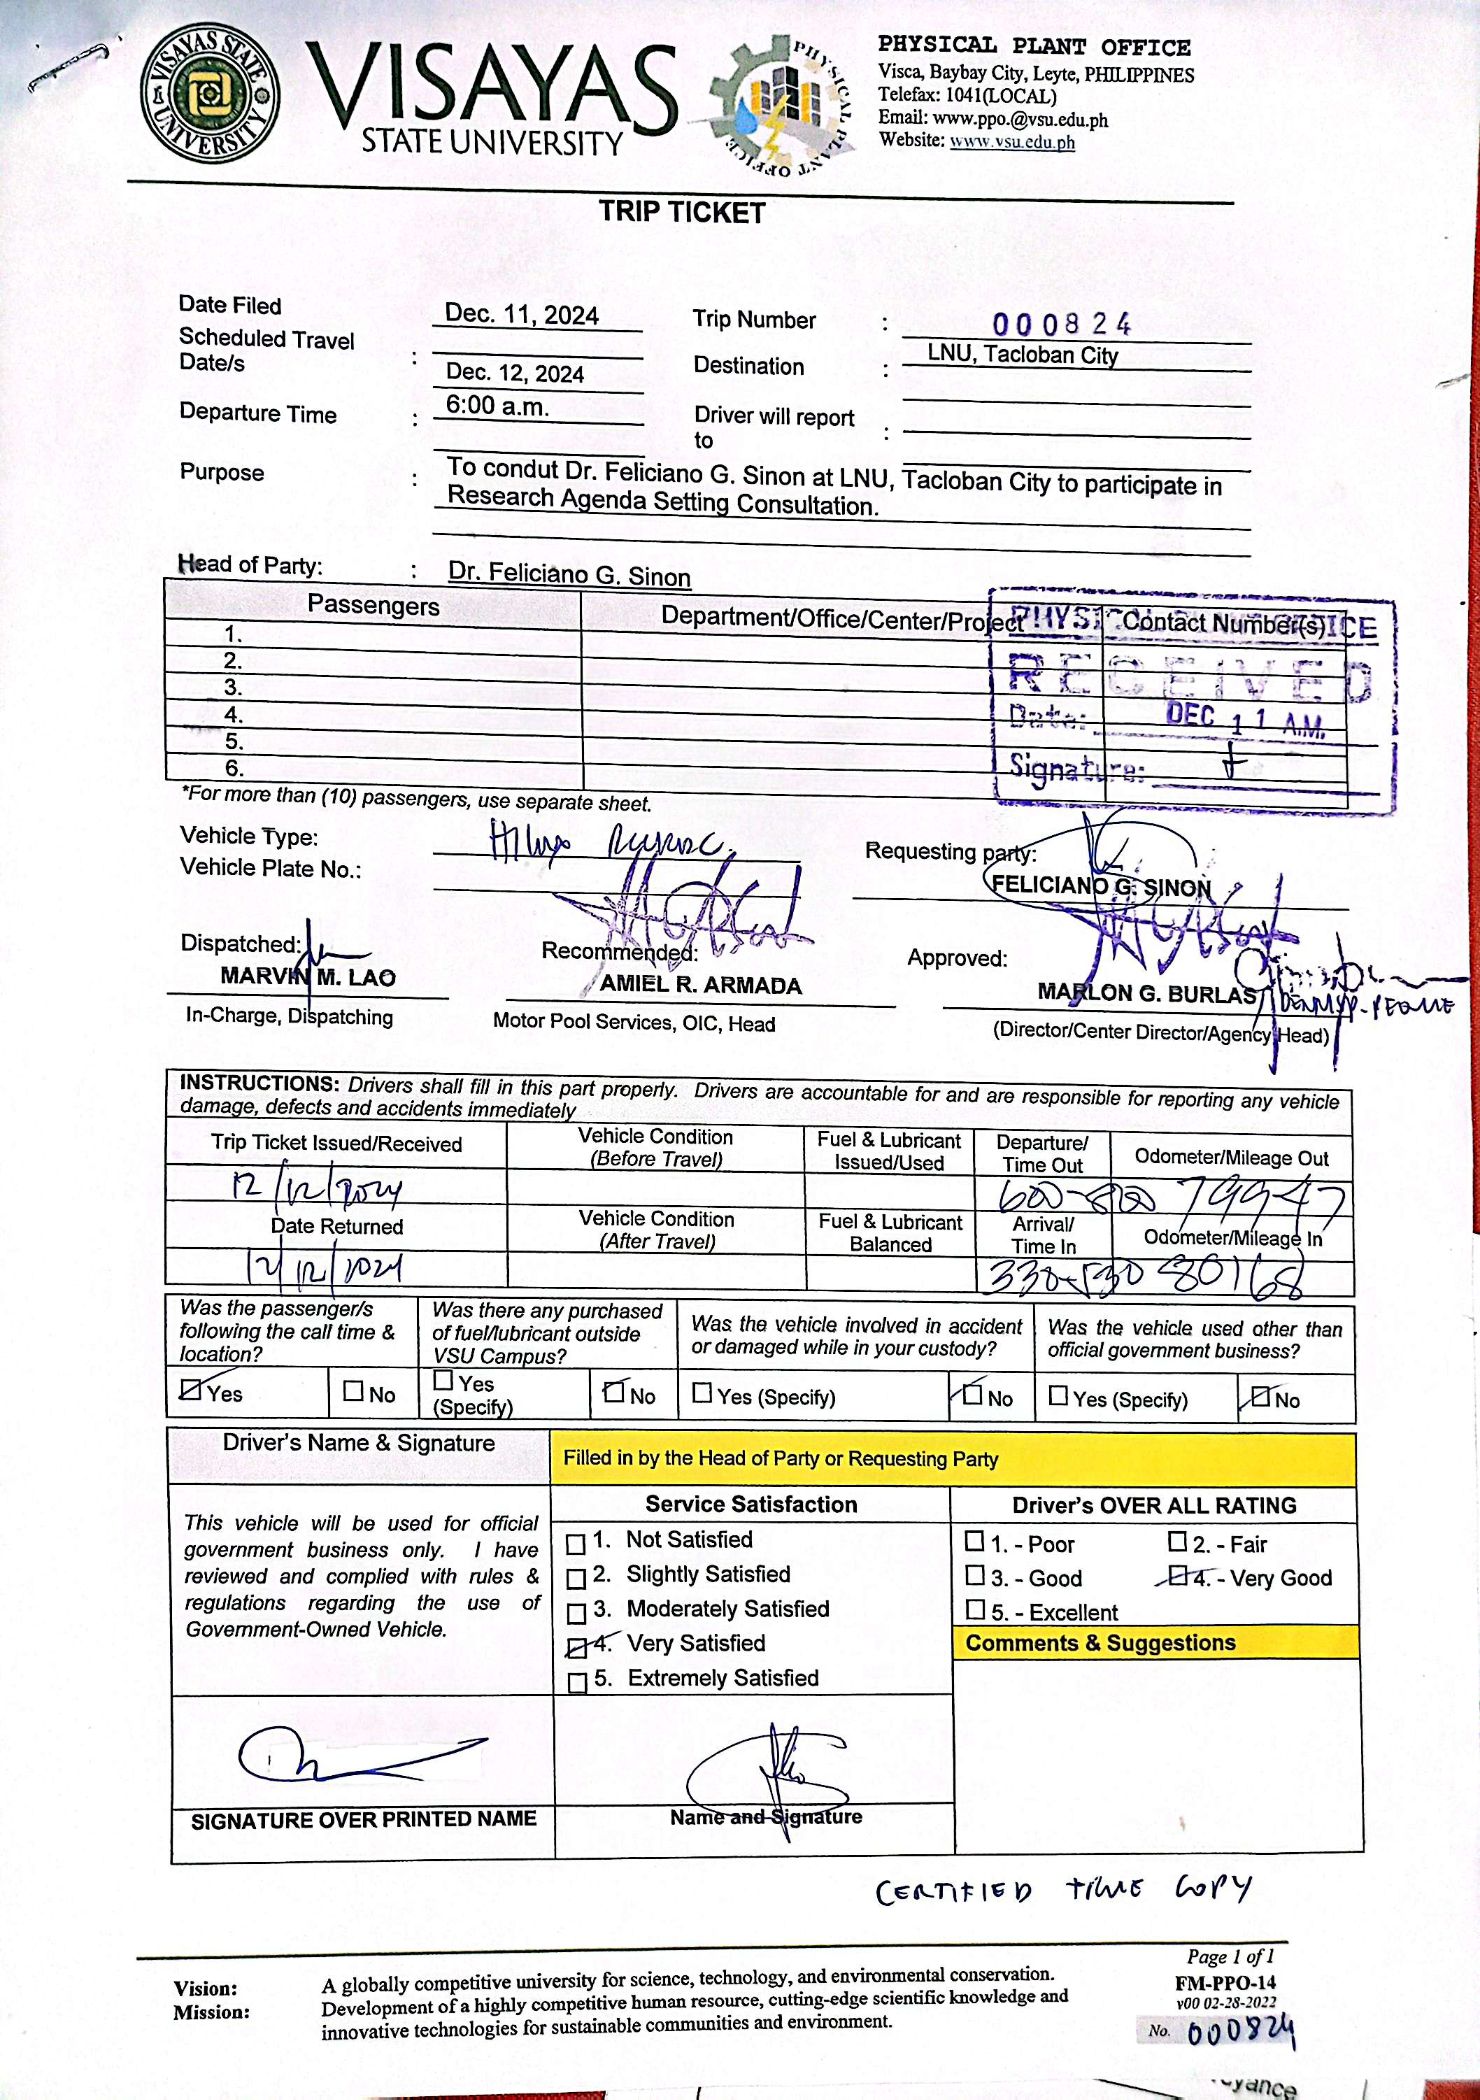 VISAYAS STATE UNIVERSITY
VISAYAS
STATE UNIVERSITY
PHYSICAL PLANT OFFICE
PHYSICAL PLANT OFFICE
Visca, Baybay City, Leyte, PHILIPPINES
Telefax: 1041(LOCAL)
Email: www.ppo.@vsu.edu.ph
Website: www.vsu.edu.ph
TRIP TICKET
Date Filed Dec. 11, 2024 Trip Number : 000824
Scheduled Travel Date/s : Dec. 12, 2024 Destination : LNU, Tacloban City
Departure Time : 6:00 a.m. Driver will report to :
Purpose : To condut Dr. Feliciano G. Sinon at LNU, Tacloban City to participate in
Research Agenda Setting Consultation.
Head of Party: : Dr. Feliciano G. Sinon
Passengers Department/Office/Center/Project Contact Number(s)
1.
2.
3.
4.
5.
6.
RECEIVED
Date: DEC 11 A.M.
Signature:
*For more than (10) passengers, use separate sheet.
Vehicle Type: Hilux
Vehicle Plate No.:
Requesting party:
FELICIANO G. SINON
Dispatched: Recommended: Approved:
MARVIN M. LAO AMIEL R. ARMADA MARLON G. BURLAS
In-Charge, Dispatching Motor Pool Services, OIC, Head (Director/Center Director/Agency Head)
INSTRUCTIONS: Drivers shall fill in this part properly. Drivers are accountable for and are responsible for reporting any vehicle
damage, defects and accidents immediately
Trip Ticket Issued/Received Vehicle Condition (Before Travel) Fuel & Lubricant Issued/Used Departure/ Time Out Odometer/Mileage Out
12/12/2024 600-800 79947
Date Returned Vehicle Condition (After Travel) Fuel & Lubricant Balanced Arrival/ Time In Odometer/Mileage In
12/12/2024 330-530 80168
Was the passenger/s following the call time & location?
Yes No
Was there any purchased of fuel/lubricant outside VSU Campus?
Yes (Specify) No
Was the vehicle involved in accident or damaged while in your custody?
Yes (Specify) No
Was the vehicle used other than official government business?
Yes (Specify) No
Driver's Name & Signature
Filled in by the Head of Party or Requesting Party
This vehicle will be used for official
government business only. I have
reviewed and complied with rules &
regulations regarding the use of
Government-Owned Vehicle.
Service Satisfaction
1. Not Satisfied
2. Slightly Satisfied
3. Moderately Satisfied
4. Very Satisfied
5. Extremely Satisfied
Driver's OVER ALL RATING
1. - Poor 2. - Fair
3. - Good 4. - Very Good
5. - Excellent
Comments & Suggestions
SIGNATURE OVER PRINTED NAME
Name and Signature
CERTIFIED TRUE COPY
Page 1 of 1
FM-PPO-14
v00 02-28-2022
No. 000824
Vision: A globally competitive university for science, technology, and environmental conservation.
Mission: Development of a highly competitive human resource, cutting-edge scientific knowledge and
innovative technologies for sustainable communities and environment.